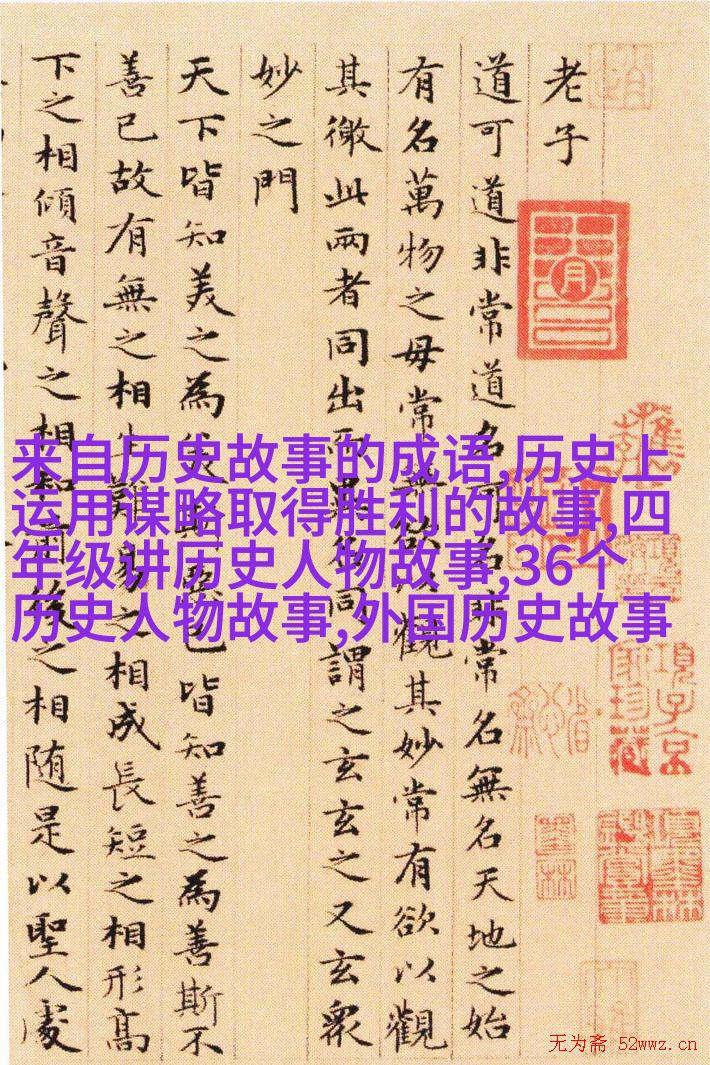 老子
道可道非常道名可名非常名無名天地之始
有名萬物之母常無欲以觀其妙常有欲以觀
其徼此兩者同出而異名同謂之玄玄之又玄衆
妙之門
天下皆知美之為美斯惡已皆知善之為善斯不
善已故有無之相生難易之相成長短之相形高
下之相傾音聲之相和前後之相随是以聖人處
来自历史故事的成语,历史上
运用谋略取得胜利的故事,四
年级讲历史人物故事,36个
历史人物故事,外国历史故事
項子京
家珍藏
无为斋 52wwz.cn